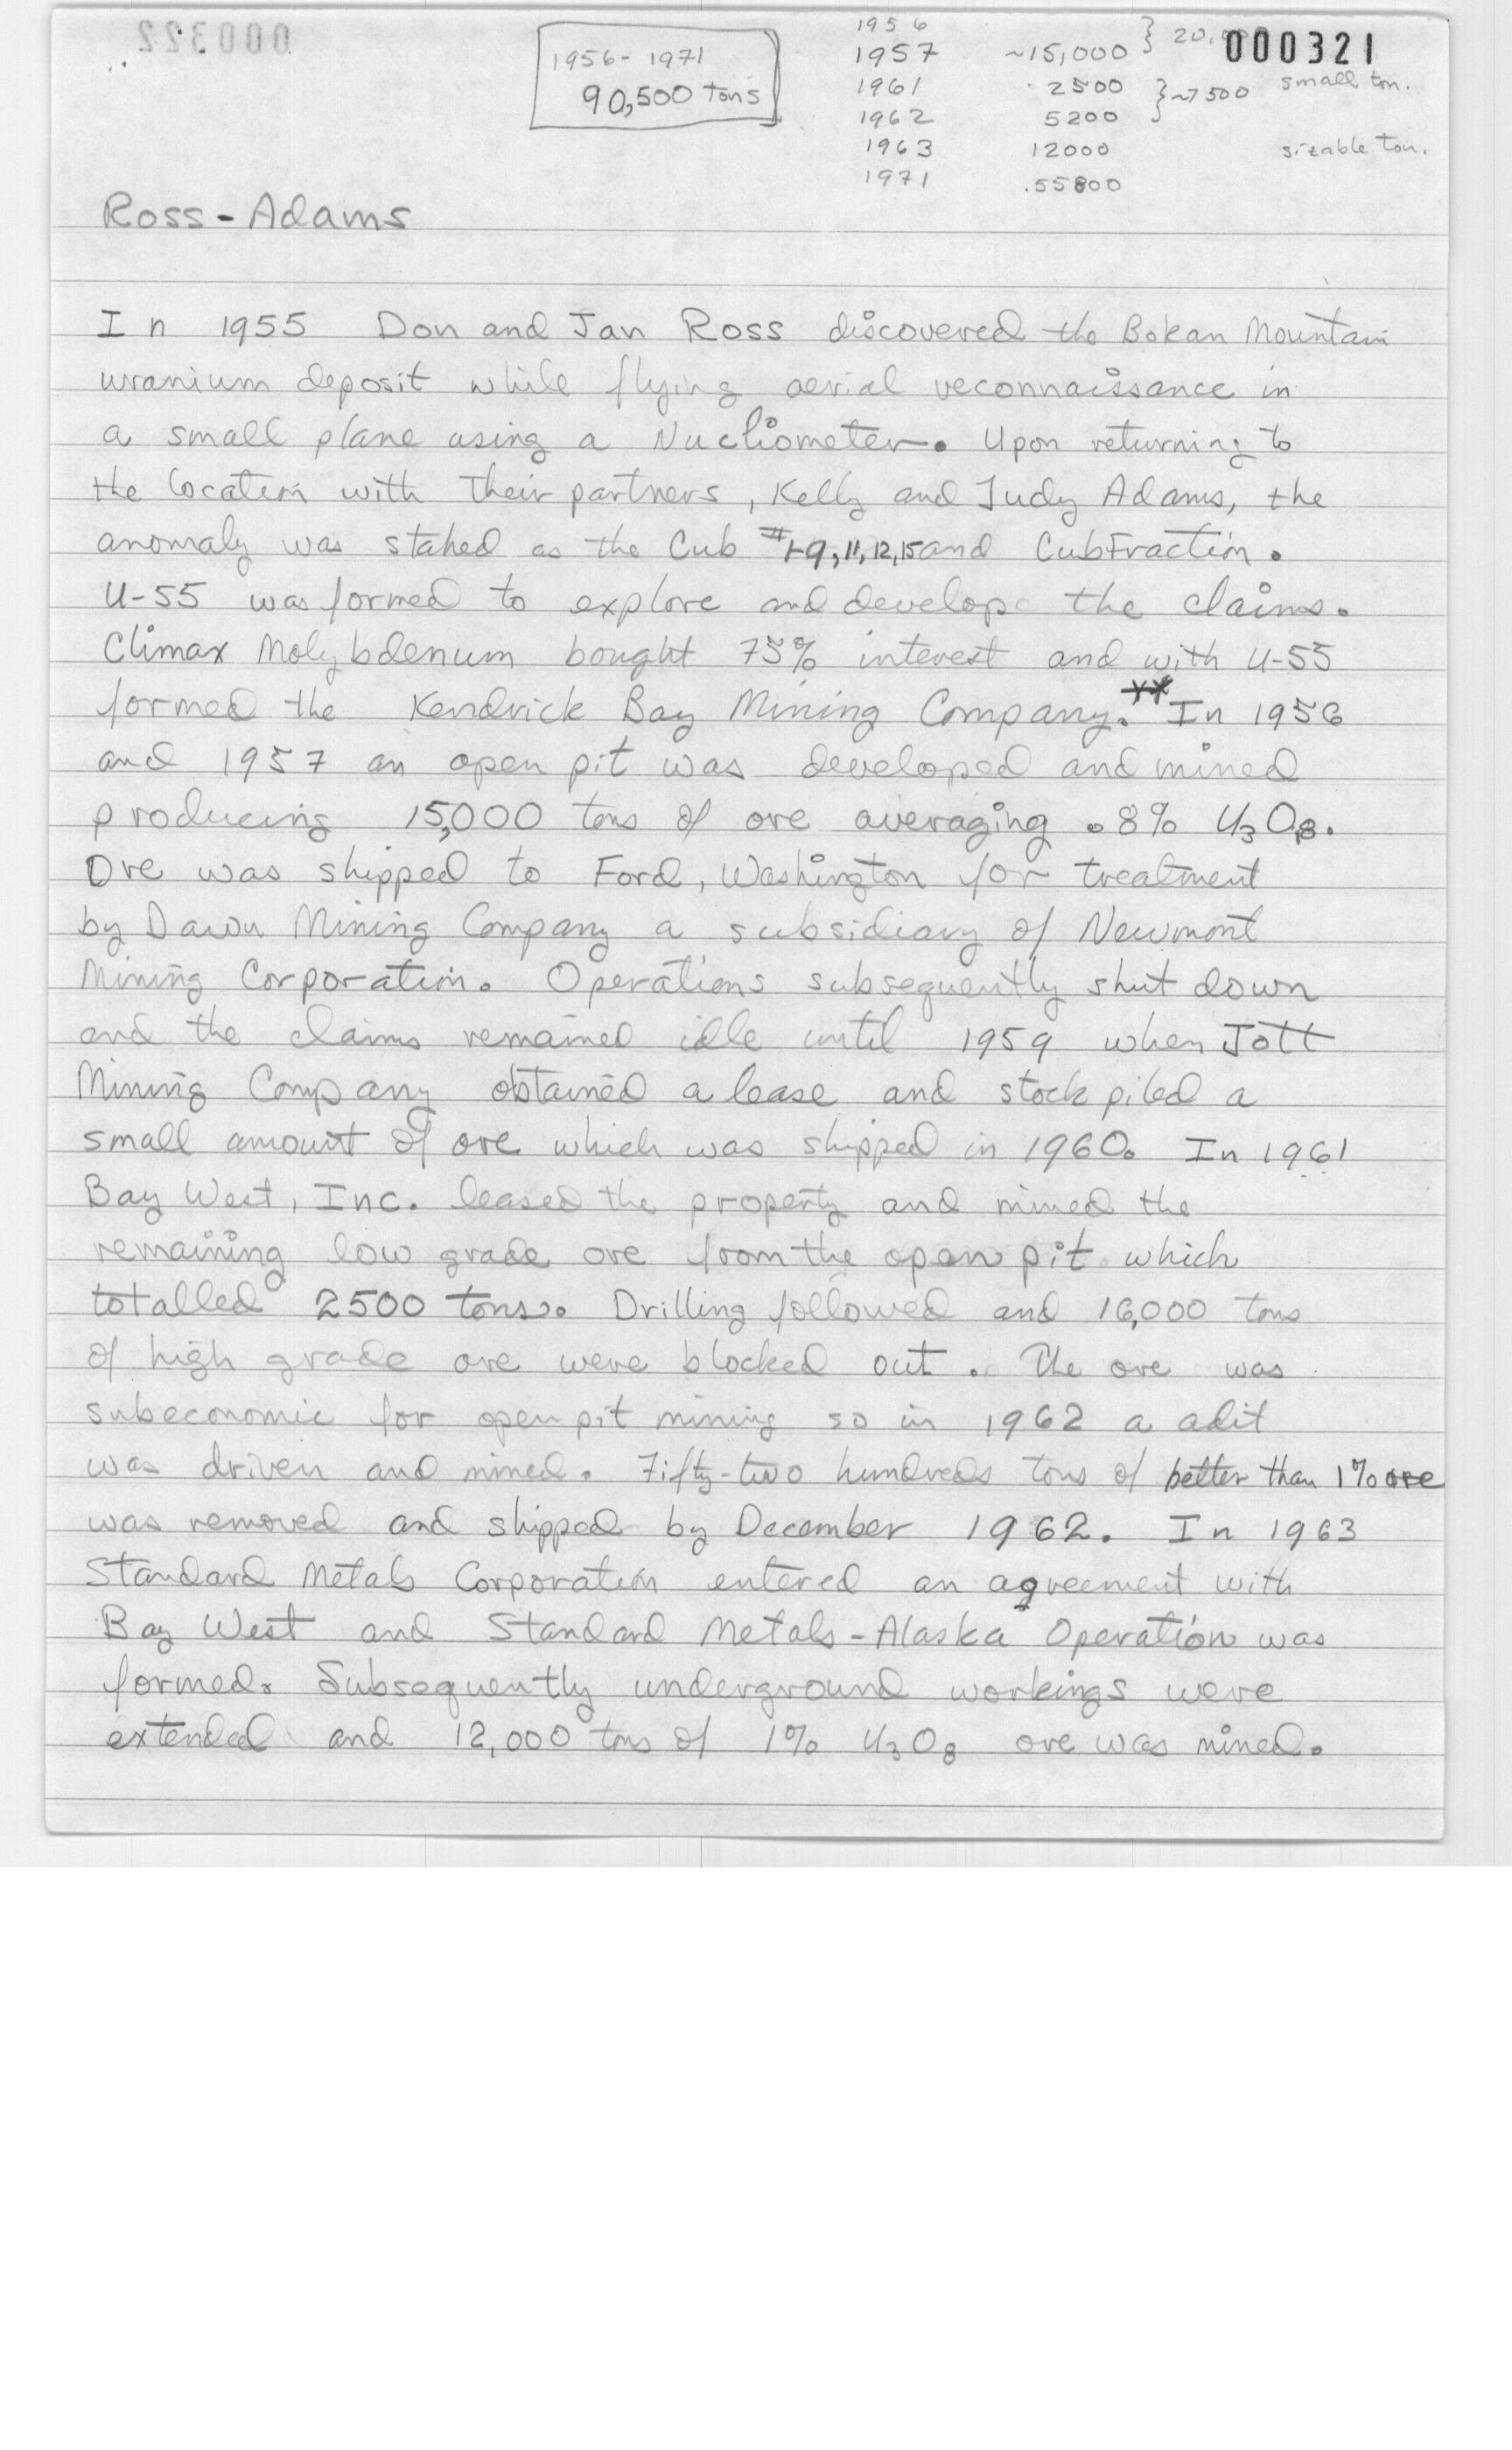 000322
1956 - 1971
90,500 tons
1956
1957 ~15,000 } 20,
000321
1961 2500 } ~7500 small ton.
1962 5200
1963 12000 sizable ton.
1971 55800
Ross - Adams
In 1955 Don and Jan Ross discovered the Bokan Mountain
uranium deposit while flying aerial reconnaissance in
a small plane using a Nucliometer. Upon returning to
the location with their partners, Kelly and Judy Adams, the
anomaly was staked as the Cub #1-9, 11, 12, 15 and Cub Fraction.
U-55 was formed to explore and develop the claims.
Climax Molybdenum bought 75% interest and with U-55
formed the Kendrick Bay Mining Company.** In 1956
and 1957 an open pit was developed and mined
producing 15,000 tons of ore averaging .8% U3O8.
Ore was shipped to Ford, Washington for treatment
by Dawn Mining Company a subsidiary of Newmont
Mining Corporation. Operations subsequently shut down
and the claims remained idle until 1959 when Jott
Mining Company obtained a lease and stock piled a
small amount of ore which was shipped in 1960. In 1961
Bay West, Inc. leased the property and mined the
remaining low grade ore from the open pit which
totalled 2500 tons. Drilling followed and 16,000 tons
of high grade ore were blocked out. The ore was
subeconomic for open pit mining so in 1962 a adit
was driven and mined. Fifty-two hundreds tons of better than 1% ore
was removed and shipped by December 1962. In 1963
Standard Metals Corporation entered an agreement with
Bay West and Standard Metals - Alaska Operation was
formed. Subsequently underground workings were
extended and 12,000 tons of 1% U3O8 ore was mined.